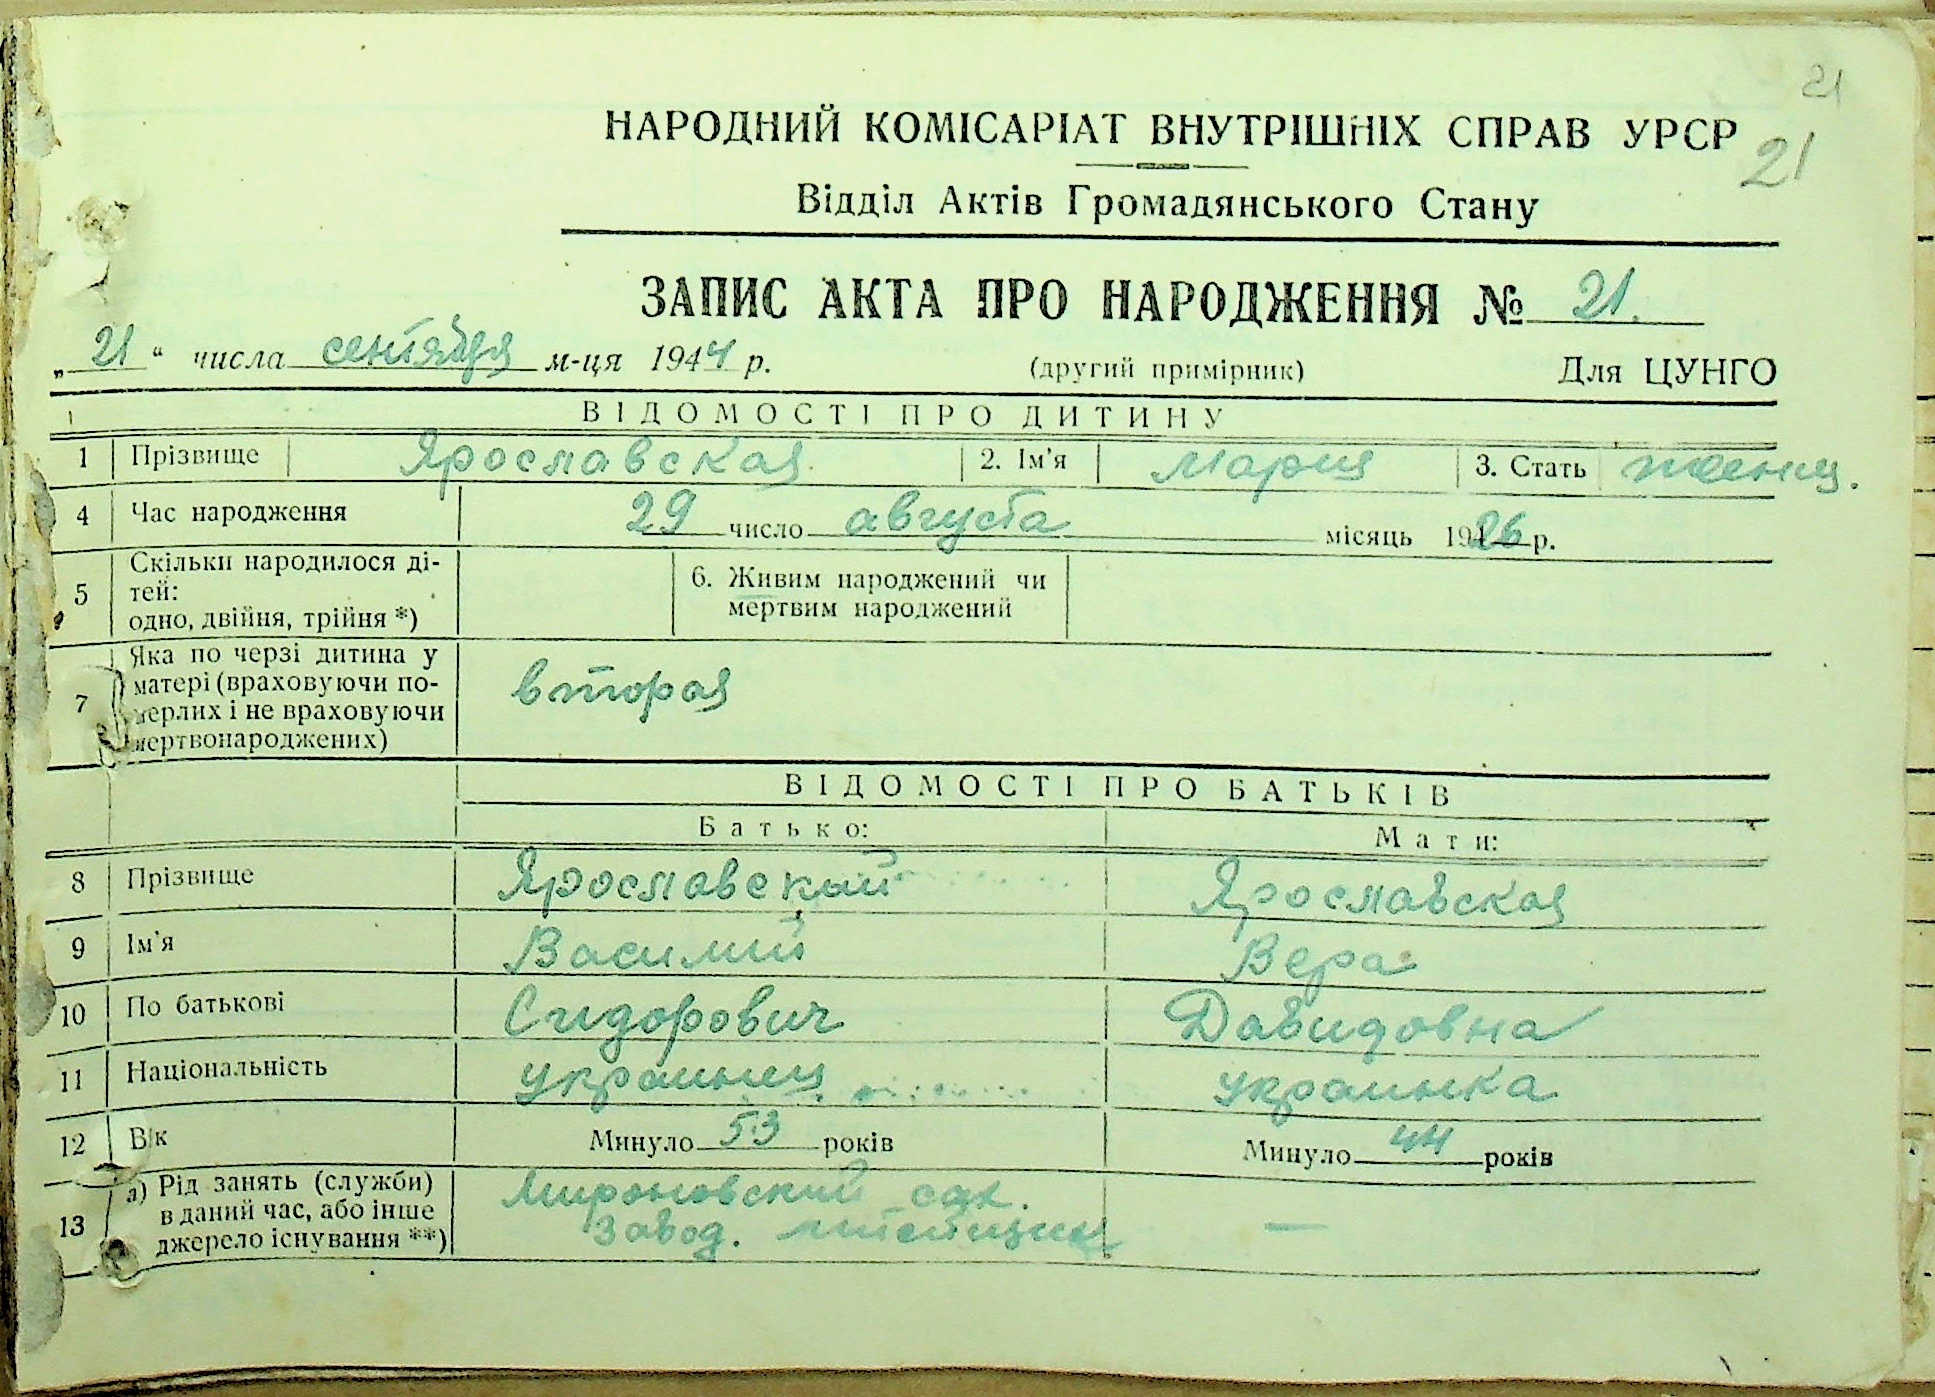 21
НАРОДНИЙ КОМІСАРІАТ ВНУТРІШНІХ СПРАВ УРСР
21
Відділ Актів Громадянського Стану
ЗАПИС АКТА ПРО НАРОДЖЕННЯ № 21.
„21“ числа сентября м-ця 1944 р. (другий примірник) Для ЦУНГО
ВІДОМОСТІ ПРО ДИТИНУ
1 Прізвище Ярославская 2. Ім'я Мария 3. Стать женщ.
4 Час народження 29 число августа місяць 1926 р.
5 Скільки народилося ді-
тей:
одно, двійня, трійня *)
6. Живим народжений чи
мертвим народжений
7 Яка по черзі дитина у
матері (враховуючи по-
мерлих і не враховуючи
мертвонароджених)
вторая
ВІДОМОСТІ ПРО БАТЬКІВ
Батько: Мати:
8 Прізвище Ярославский Ярославская
9 Ім'я Василий Вера
10 По батькові Сидорович Давидовна
11 Національність украинец украинка
12 Вік Минуло 53 років Минуло 44 років
13 а) Рід занять (служби)
в даний час, або інше
джерело існування **)
Мироновский сах.
завод. —